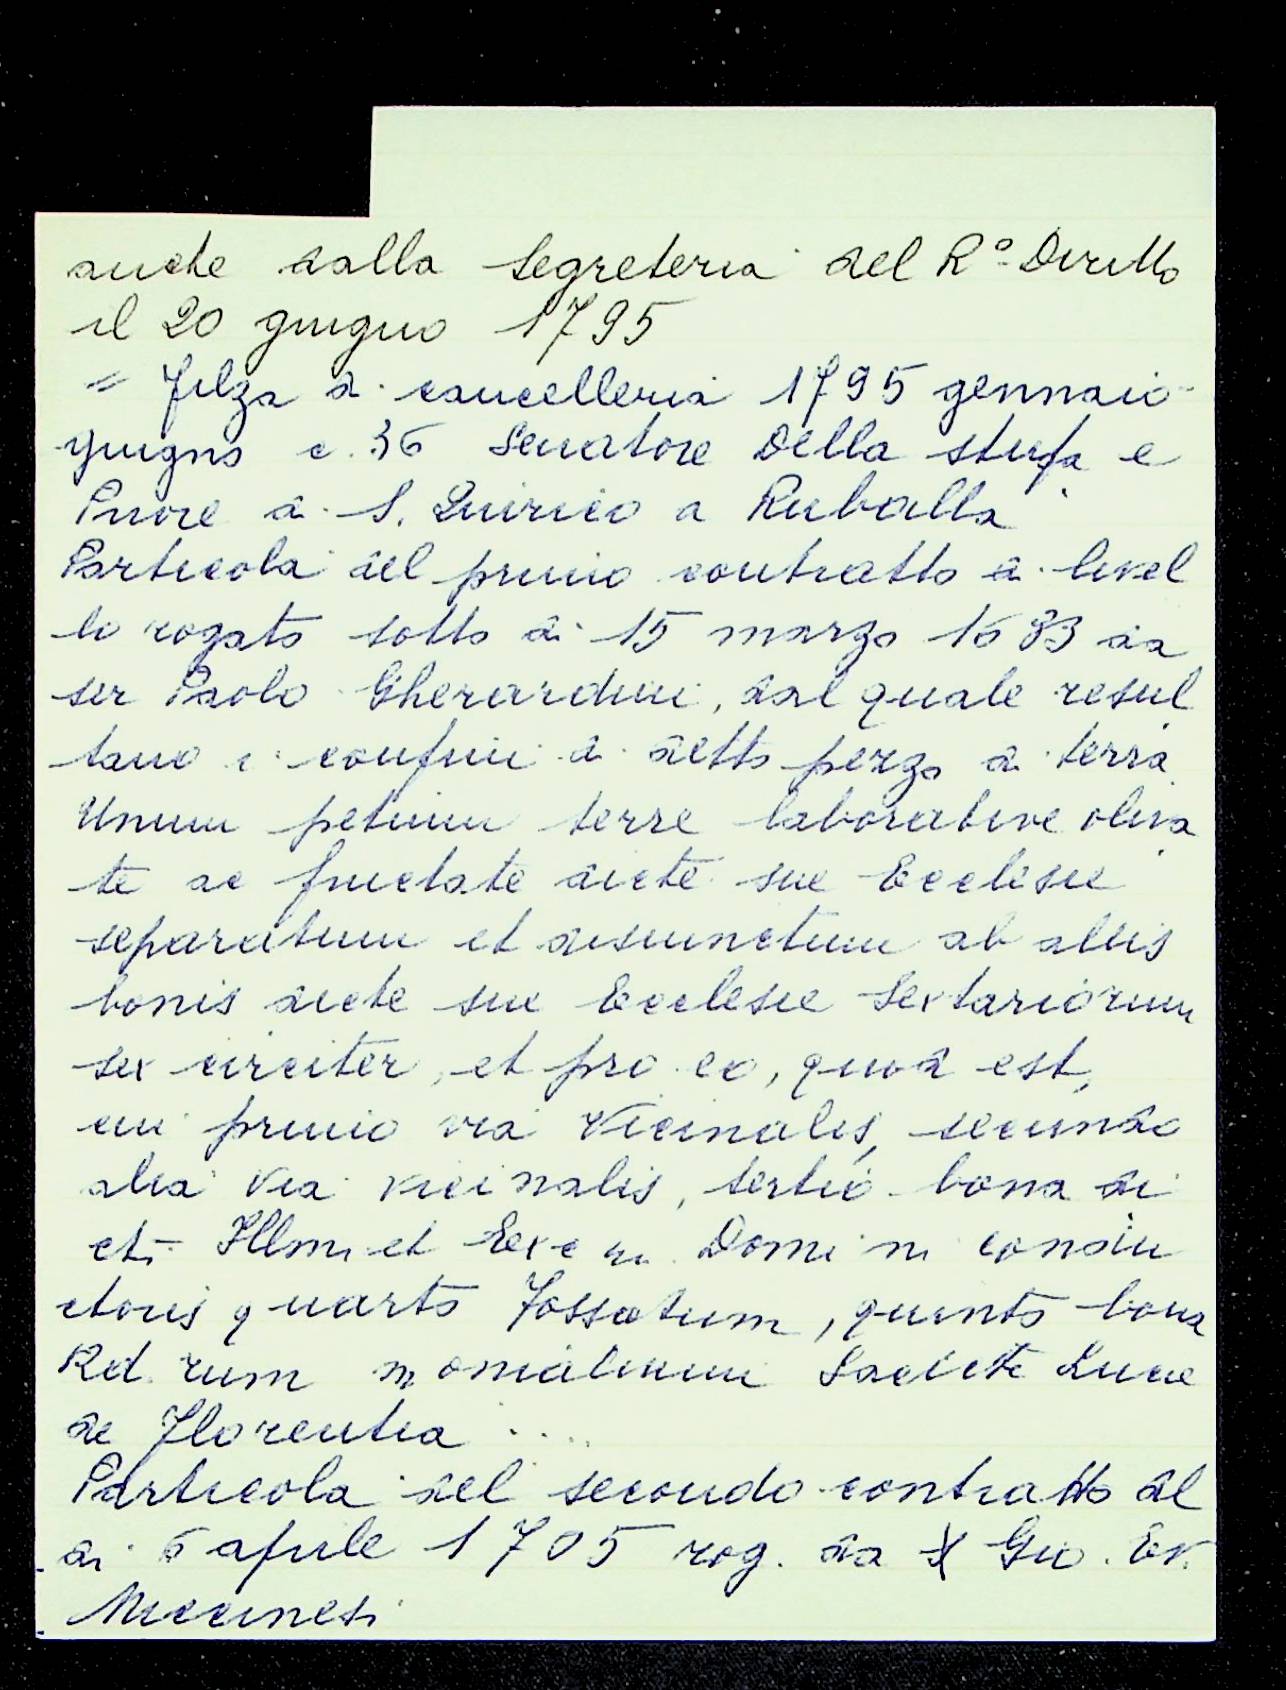 anche dalla Segreteria del R.º Diritto
il 20 giugno 1795
= Filza di cancelleria 1795 gennaio-
giugno c. 36 Senatore Della Stufa e
Priore di S. Quirico a Ruballa
Particola del primo contratto di livel
lo rogato sotto di 15 marzo 1683 da
ser Paolo Gherardini, dal quale resul
tano i confini di detto pezzo di terra
Unum petium terre laborative oliva
te ac fructate dicte sue Ecclesie
separatum et disiunctum ab aliis
bonis dicte sue Ecclesie Sextariorum
sex circiter, et pro eo, quod est,
cui primo via Vicinalis, secundo
alia via vicinalis, tertio bona di
cti Illmi et Exc m Domini condu
ctoris quarto Fossatum, quinto bona
Rd. rum monialium Sancte Lucie
de Florentia ....
Particola del secondo contratto del
di 6 aprile 1705 rog. da Gio. Ev.
Miccinesi